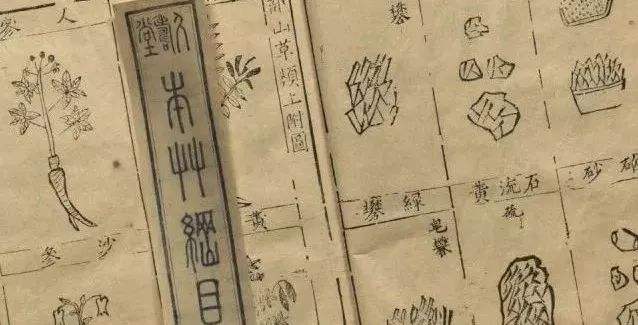 人參
沙參
本艸綱目
山草類上附圖
黃
礬
綠礬
皂礬
石流黃
硫
砂